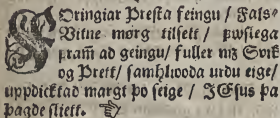 FOringiar Presta feingu / Fals-
Vitne mørg tilsett / þvsliega
fram ad geingu / fuller mz Svik
og Prett / samhliooda urdu eige /
uppdicktad margt þo seige / JEsus þa
þagde sliett.